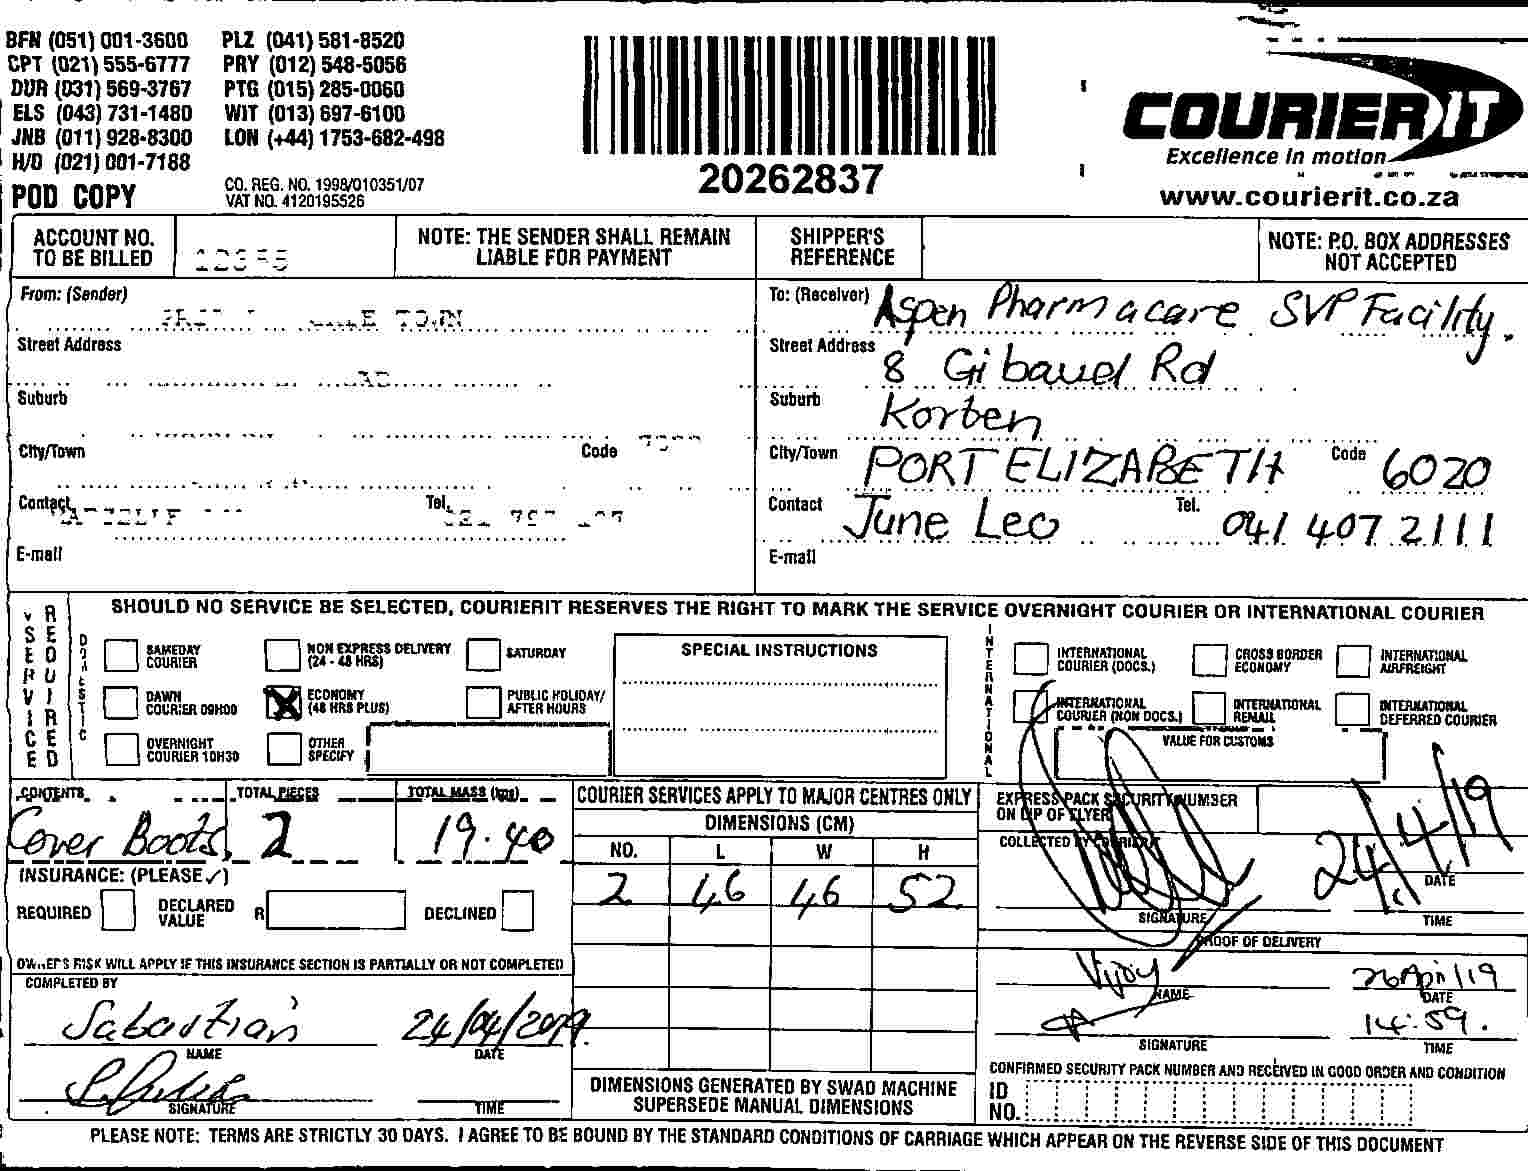 BFN (051) 001-3600 PLZ (041) 581-8520
CPT (021) 555-6777 PRY (012) 548-5056
DUR (031) 569-3767 PTG (015) 285-0060
ELS (043) 731-1480 WIT (013) 697-6100
JNB (011) 928-8300 LON (+44) 1753-682-498
H/O (021) 001-7188
POD COPY
CO. REG. NO. 1998/010351/07
VAT NO. 4120195526
20262837
COURIER IT
Excellence in motion
www.courierit.co.za
ACCOUNT NO. TO BE BILLED
NOTE: THE SENDER SHALL REMAIN LIABLE FOR PAYMENT
SHIPPER'S REFERENCE
NOTE: P.O. BOX ADDRESSES NOT ACCEPTED
From: (Sender)
Street Address
Suburb
City/Town Code
Contact Tel.
E-mail
To: (Receiver) Aspen Pharmacare SVP Facility.
Street Address 8 Gibaud Rd
Suburb Korten
City/Town PORT ELIZABETH Code 6020
Contact June Leo Tel. 041 407 2111
E-mail
SERVICE REQUIRED
SHOULD NO SERVICE BE SELECTED, COURIERIT RESERVES THE RIGHT TO MARK THE SERVICE OVERNIGHT COURIER OR INTERNATIONAL COURIER
DOMESTIC
SAMEDAY COURIER
NON EXPRESS DELIVERY (24 - 48 HRS)
SATURDAY
DAWN COURIER 09H00
ECONOMY (48 HRS PLUS)
PUBLIC HOLIDAY/ AFTER HOURS
OVERNIGHT COURIER 10H30
OTHER SPECIFY
SPECIAL INSTRUCTIONS
INTERNATIONAL
INTERNATIONAL COURIER (DOCS.)
CROSS BORDER ECONOMY
INTERNATIONAL AIRFREIGHT
INTERNATIONAL COURIER (NON DOCS.)
INTERNATIONAL REMAIL
INTERNATIONAL DEFERRED COURIER
VALUE FOR CUSTOMS
CONTENTS TOTAL PIECES TOTAL MASS (kgs)
Cover Boots, 2 19.40
INSURANCE: (PLEASE ✓)
REQUIRED DECLARED VALUE R DECLINED
OWNER'S RISK WILL APPLY IF THIS INSURANCE SECTION IS PARTIALLY OR NOT COMPLETED
COMPLETED BY
Sabastian 24/04/2019
NAME DATE
SIGNATURE TIME
COURIER SERVICES APPLY TO MAJOR CENTRES ONLY
DIMENSIONS (CM)
NO. L W H
2 46 46 52
DIMENSIONS GENERATED BY SWAD MACHINE SUPERSEDE MANUAL DIMENSIONS
EXPRESS PACK SECURITY NUMBER ON LIP OF FLYER
COLLECTED BY COURIERIT
24/4/19
DATE
SIGNATURE TIME
PROOF OF DELIVERY
Vijoy 26 Apri/19
NAME DATE
14:59.
SIGNATURE TIME
CONFIRMED SECURITY PACK NUMBER AND RECEIVED IN GOOD ORDER AND CONDITION
ID NO.
PLEASE NOTE: TERMS ARE STRICTLY 30 DAYS. I AGREE TO BE BOUND BY THE STANDARD CONDITIONS OF CARRIAGE WHICH APPEAR ON THE REVERSE SIDE OF THIS DOCUMENT